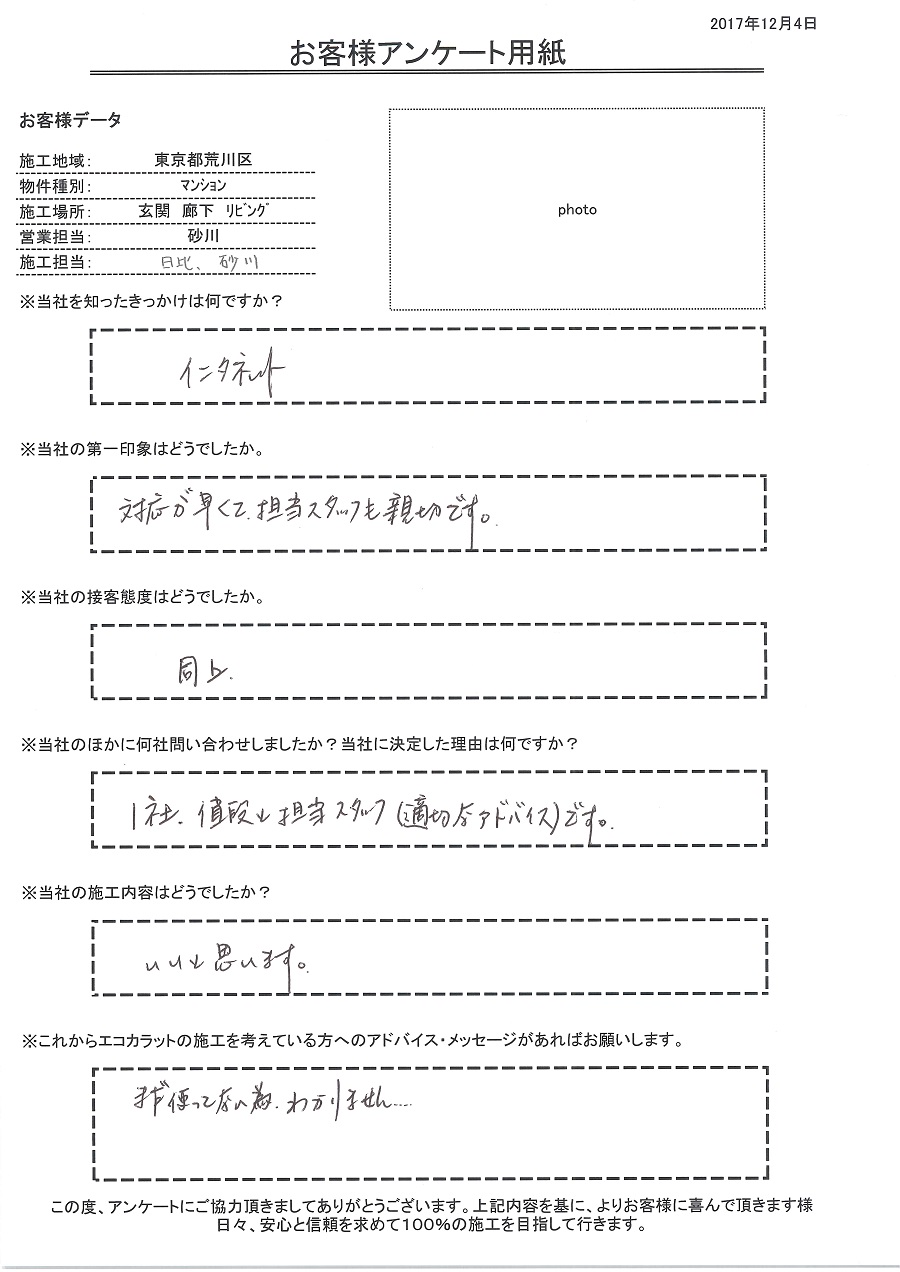 2017年12月4日
お客様アンケート用紙
お客様データ
photo
施工地域: 東京都荒川区
物件種別: ﾏﾝｼｮﾝ
施工場所: 玄関 廊下 ﾘﾋﾞﾝｸﾞ
営業担当: 砂川
施工担当: 日比、砂川
※当社を知ったきっかけは何ですか？
インタネット
※当社の第一印象はどうでしたか。
対応が早くて、担当スタッフも親切です。
※当社の接客態度はどうでしたか。
同上.
※当社のほかに何社問い合わせしましたか？当社に決定した理由は何ですか？
1社、値段と担当スタッフ(適切なアドバイス)です。
※当社の施工内容はどうでしたか？
いいと思います。
※これからエコカラットの施工を考えている方へのアドバイス・メッセージがあればお願いします。
まだ使ってない為、わかりません……
この度、アンケートにご協力頂きましてありがとうございます。上記内容を基に、よりお客様に喜んで頂きます様
日々、安心と信頼を求めて100%の施工を目指して行きます。